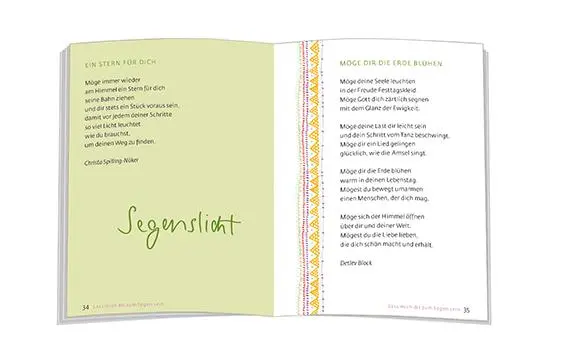 EIN STERN FÜR DICH
Möge immer wieder
am Himmel ein Stern für dich
seine Bahn ziehen
und dir stets ein Stück voraus sein,
damit vor jedem deiner Schritte
so viel Licht leuchtet
wie du brauchst,
um deinen Weg zu finden.
Christa Spilling-Nöker
Segenslicht
34 Lass mich dir zum Segen sein
MÖGE DIR DIE ERDE BLÜHEN
Möge deine Seele leuchten
in der Freude Festtagskleid
Möge Gott dich zärtlich segnen
mit dem Glanz der Ewigkeit.
Möge deine Last dir leicht sein
und dein Schritt vom Tanz beschwingt.
Möge dir ein Lied gelingen
glücklich, wie die Amsel singt.
Möge dir die Erde blühen
warm in deinen Lebenstag.
Mögest du bewegt umarmen
einen Menschen, der dich mag.
Möge sich der Himmel öffnen
über dir und deiner Welt.
Mögest du die Liebe lieben,
die dich schön macht und erhält.
Detlev Block
Lass mich dir zum Segen sein 35